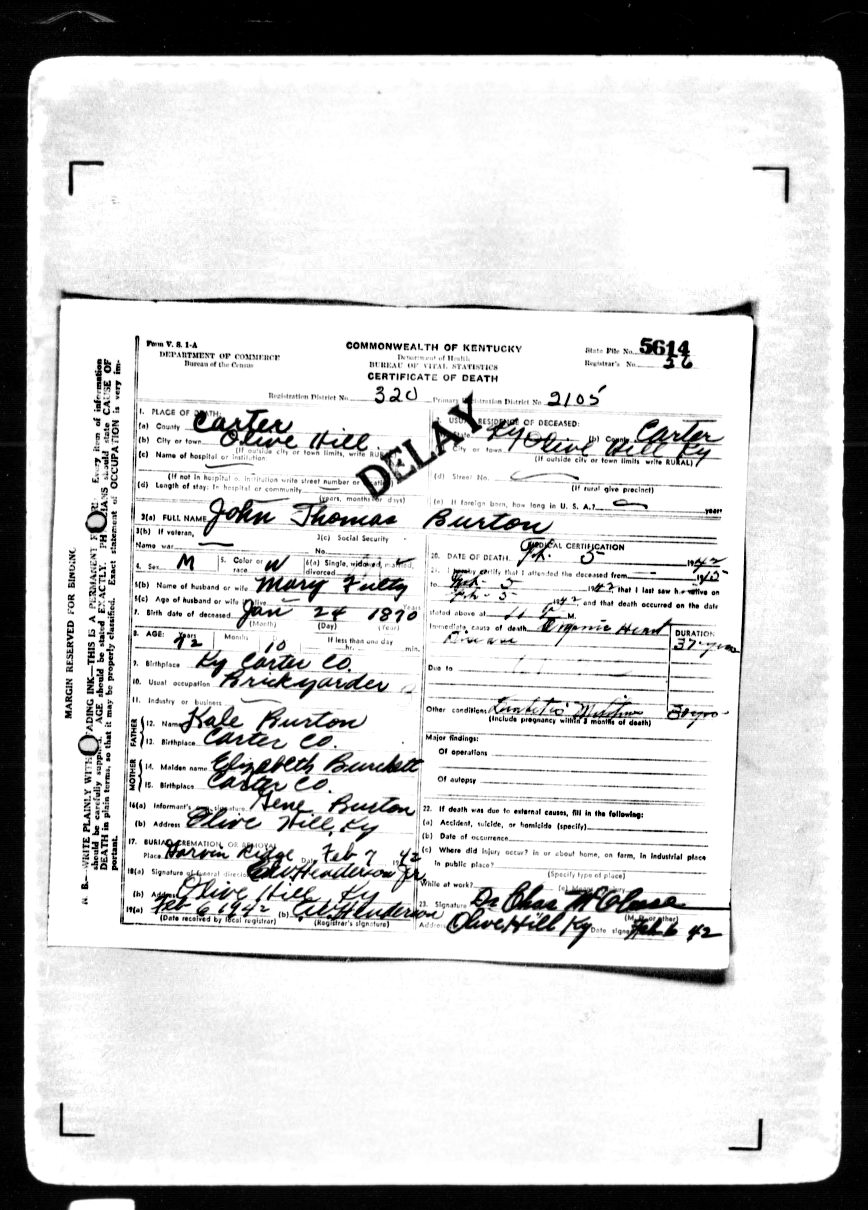 Form V. S. 1-A
DEPARTMENT OF COMMERCE
Bureau of the Census
COMMONWEALTH OF KENTUCKY
Department of Health
BUREAU OF VITAL STATISTICS
CERTIFICATE OF DEATH
State File No. 5614
Registrar's No. 36
Registration District No. 320 Primary Registration District No. 2105
DELAY
MARGIN RESERVED FOR BINDING
N. B.—WRITE PLAINLY WITH FADING INK—THIS IS A PERMANENT Every item of information
should be carefully supplied. AGE should be stated EXACTLY. should state CAUSE OF
DEATH in plain terms, so that it may be properly classified. Exact statement of OCCUPATION is very im-
portant.
1. PLACE OF DEATH:
(a) County Carter
(b) City or town Olive Hill
(If outside city or town limits, write RURAL)
(c) Name of hospital or institution
(If not in hospital or institution write street number or
(d) Length of stay: In hospital or community
(years, months or days)
USUAL RESIDENCE OF DECEASED:
Ky (b) County Carter
City or town Olive Hill Ky
(If outside city or town limits write RURAL)
(d) Street No.
(If rural give precinct)
(e) If foreign born, how long in U. S. A.? years
3(a) FULL NAME John Thomas Burton
3(b) If veteran,
Name war
3(c) Social Security
No.
4. Sex M 5. Color or race W 6(a) Single, widowed, married, divorced
6(b) Name of husband or wife Mary
6(c) Age of husband or wife if alive years
7. Birth date of deceased Jan 24 1870
(Month) (Day) (Year)
8. AGE: Years 72 Months Days 10 If less than one day
hr. min.
9. Birthplace Ky Carter Co.
10. Usual occupation Brickyarder
11. Industry or business
FATHER
12. Name Burton
13. Birthplace Carter Co.
MOTHER
14. Maiden name Elizabeth
15. Birthplace Carter Co.
16(a) Informant's own signature Gene Burton
(b) Address Olive Hill, Ky
17. BURIAL, CREMATION, OR REMOVAL
Place Ridge Date Feb 7 1942
18(a) Signature of funeral director Henderson Jr.
(b) Address Olive Hill Ky
19(a) Feb 6 1942 (b) Henderson
(Date received by local registrar) (Registrar's signature)
MEDICAL CERTIFICATION
20. DATE OF DEATH Feb. 5 1942
21. I hereby certify that I attended the deceased from
to Feb - 5 1942 that I last saw h alive on
Feb - 5 1942, and that death occurred on the date
stated above at M.
Immediate cause of death Organic Heart
Disease
DURATION
Due to
Other conditions
(Include pregnancy within 3 months of death)
Major findings:
Of operations
Of autopsy
22. If death was due to external causes, fill in the following:
(a) Accident, suicide, or homicide (specify)
(b) Date of occurrence
(c) Where did injury occur? in or about home, on farm, in industrial place
in public place?
(Specify type of place)
While at work?
(e) Means of injury
23. Signature Dr Chas
(M. D. or other)
Address Olive Hill Ky Date signed Feb 6 42